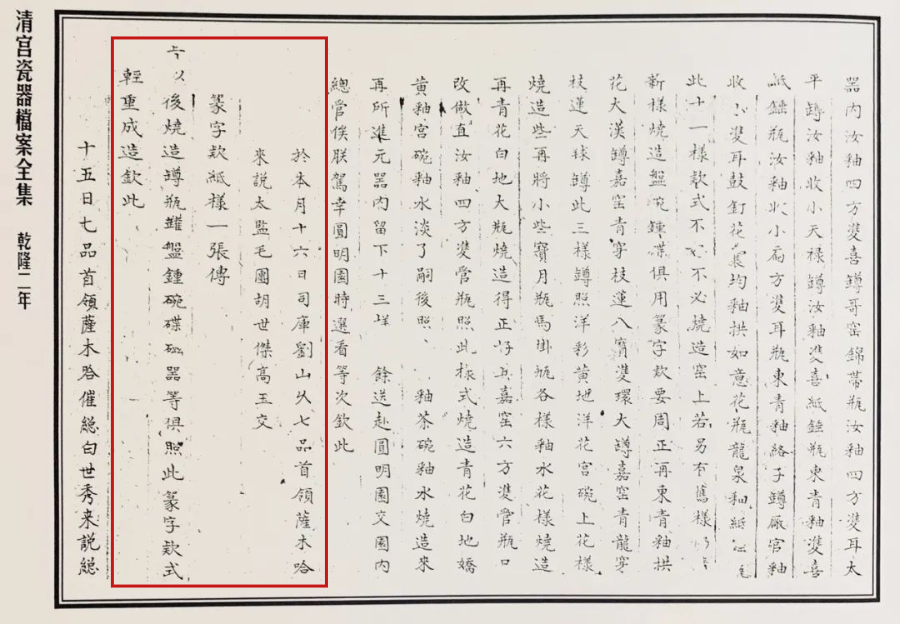 器內汝釉四方雙喜罇哥窑錦帶瓶汝釉四方雙耳太
平罇汝釉收小天禄罇汝釉雙喜紙鎚瓶東青釉雙喜
紙鎚瓶汝釉收小扁方雙耳瓶東青釉絡子罇廠官釉
收小雙耳鼓釘花囊均釉拱如意花瓶龍泉釉紙
此十一樣款式不不必燒造窑上若另有舊樣
新樣燒造盤碗鍾碟俱用篆字款要周正再東青釉拱
花大漢罇嘉窑青穿枝蓮八寶雙環大罇嘉窑青龍穿
枝蓮天球罇此三樣罇照洋彩黄地洋花宮碗上花樣
燒造些再將小些寶月瓶馬掛瓶各樣釉水花樣燒造
再青花白地大瓶燒造得正好再嘉窑六方雙管瓶口
改做直汝釉四方雙管瓶照此樣式燒造青花白地嬌
黄釉宮碗釉水淡了嗣後照釉茶碗釉水燒造來
再所進元器内留下十三样餘送赴圓明園交園内
總管俟朕駕幸圓明園時選看等次欽此
於本月十六日司庫劉山久七品首領薩木哈
來說太監毛團胡世傑高玉交
篆字款紙樣一張傳
以後燒造罇瓶罐盤鍾碗碟磁器等俱照此篆字款式
輕重成造欽此
十五日七品首領薩木哈催總白世秀来說總
清宮瓷器檔案全集 乾隆二年